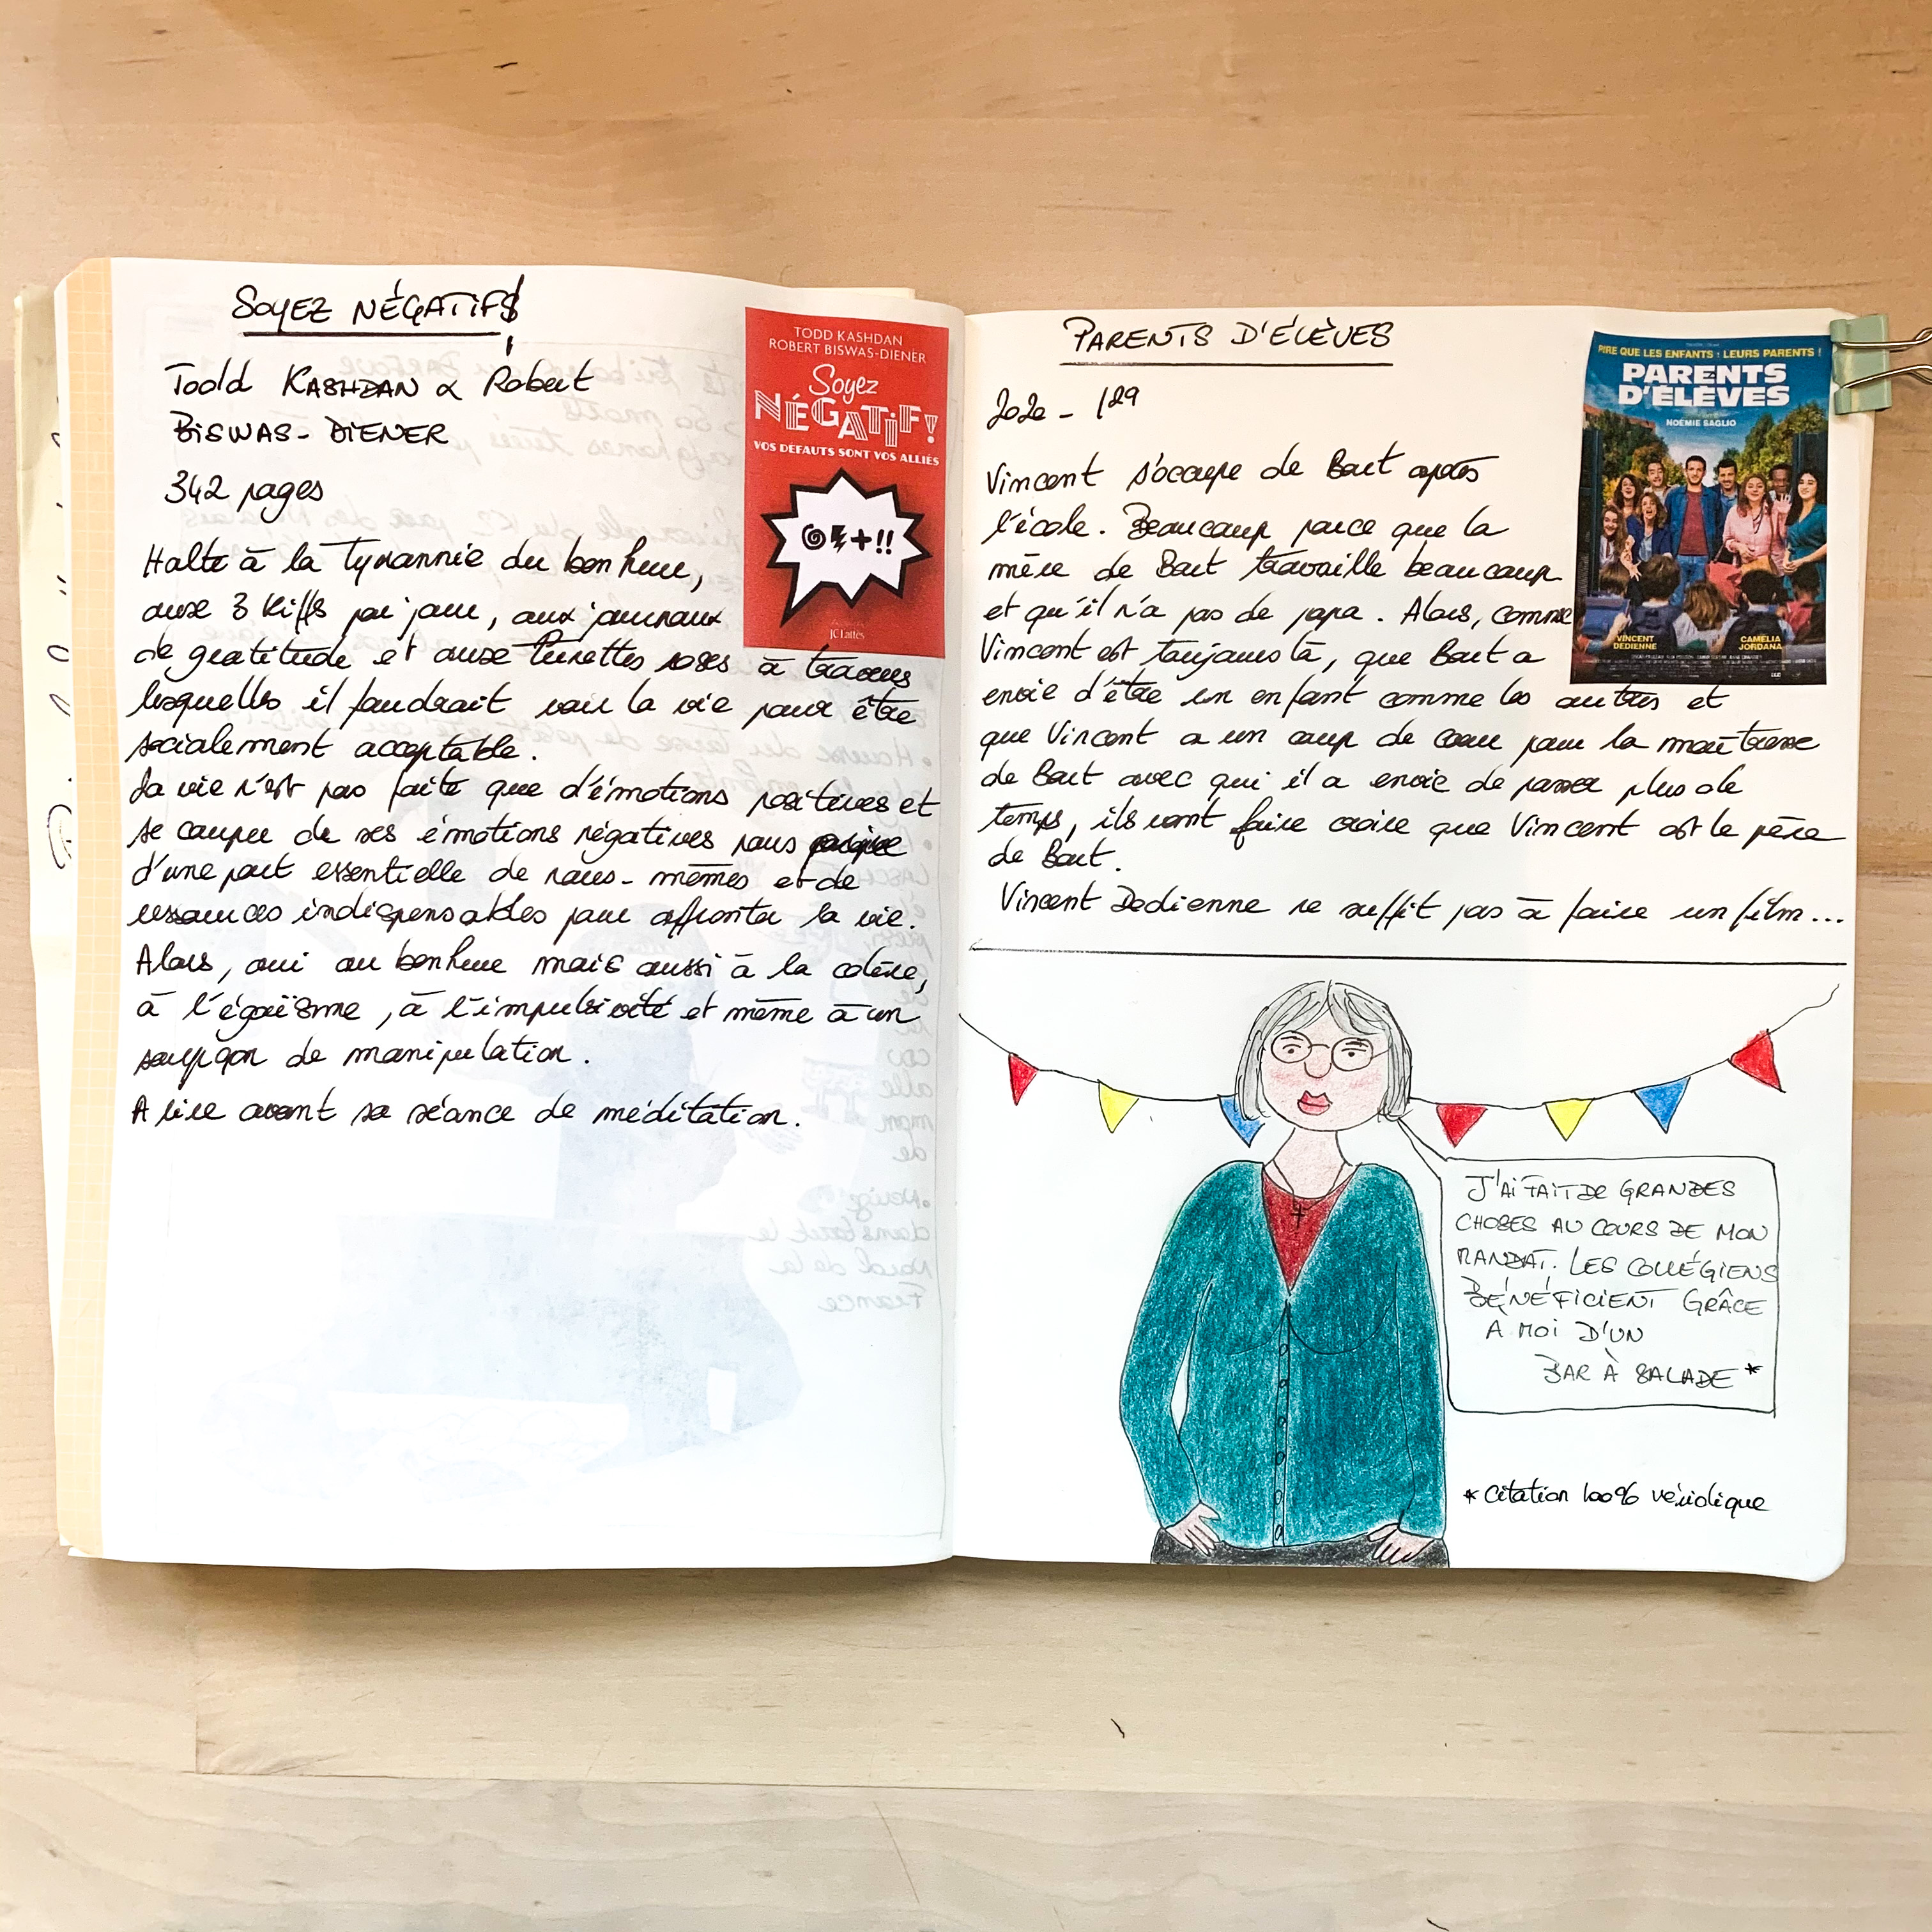 SOYEZ NÉGATIFS
Todd KASHDAN & Robert
BISWAS-DIENER
342 pages
Halte à la tyrannie du bonheur,
aux 3 kiffs par jour, aux journaux
de gratitude et aux lunettes roses à travers
lesquelles il faudrait voir la vie pour être
socialement acceptable.
La vie n'est pas faite que d'émotions positives et
se couper de ses émotions négatives nous prive
d'une part essentielle de nous-mêmes et de
ressources indispensables pour affronter la vie.
Alors, oui au bonheur mais aussi à la colère,
à l'égoïsme, à l'impulsivité et même à un
soupçon de manipulation.
A lire avant sa séance de méditation.
TODD KASHDAN
ROBERT BISWAS-DIENER
Soyez
NÉGATIF!
VOS DÉFAUTS SONT VOS ALLIÉS
@+!!
JC Lattès
PARENTS D'ÉLÈVES
2020 - 1h29
Vincent s'occupe de Bart après
l'école. Beaucoup parce que la
mère de Bart travaille beaucoup
et qu'il n'a pas de papa. Alors, comme
Vincent est toujours là, que Bart a
envie d'être un enfant comme les autres et
que Vincent a un coup de coeur pour la maîtresse
de Bart avec qui il a envie de passer plus de
temps, ils vont faire croire que Vincent est le père
de Bart.
Vincent Dedienne ne suffit pas à faire un film...
PIRE QUE LES ENFANTS : LEURS PARENTS !
PARENTS
D'ÉLÈVES
NOÉMIE SAGLIO
VINCENT
DEDIENNE
CAMÉLIA
JORDANA
J'AI FAIT DE GRANDES
CHOSES AU COURS DE MON
MANDAT. LES COLLÉGIENS
BÉNÉFICIENT GRÂCE
À MOI D'UN
BAR À SALADE *
* Citation 100% véridique